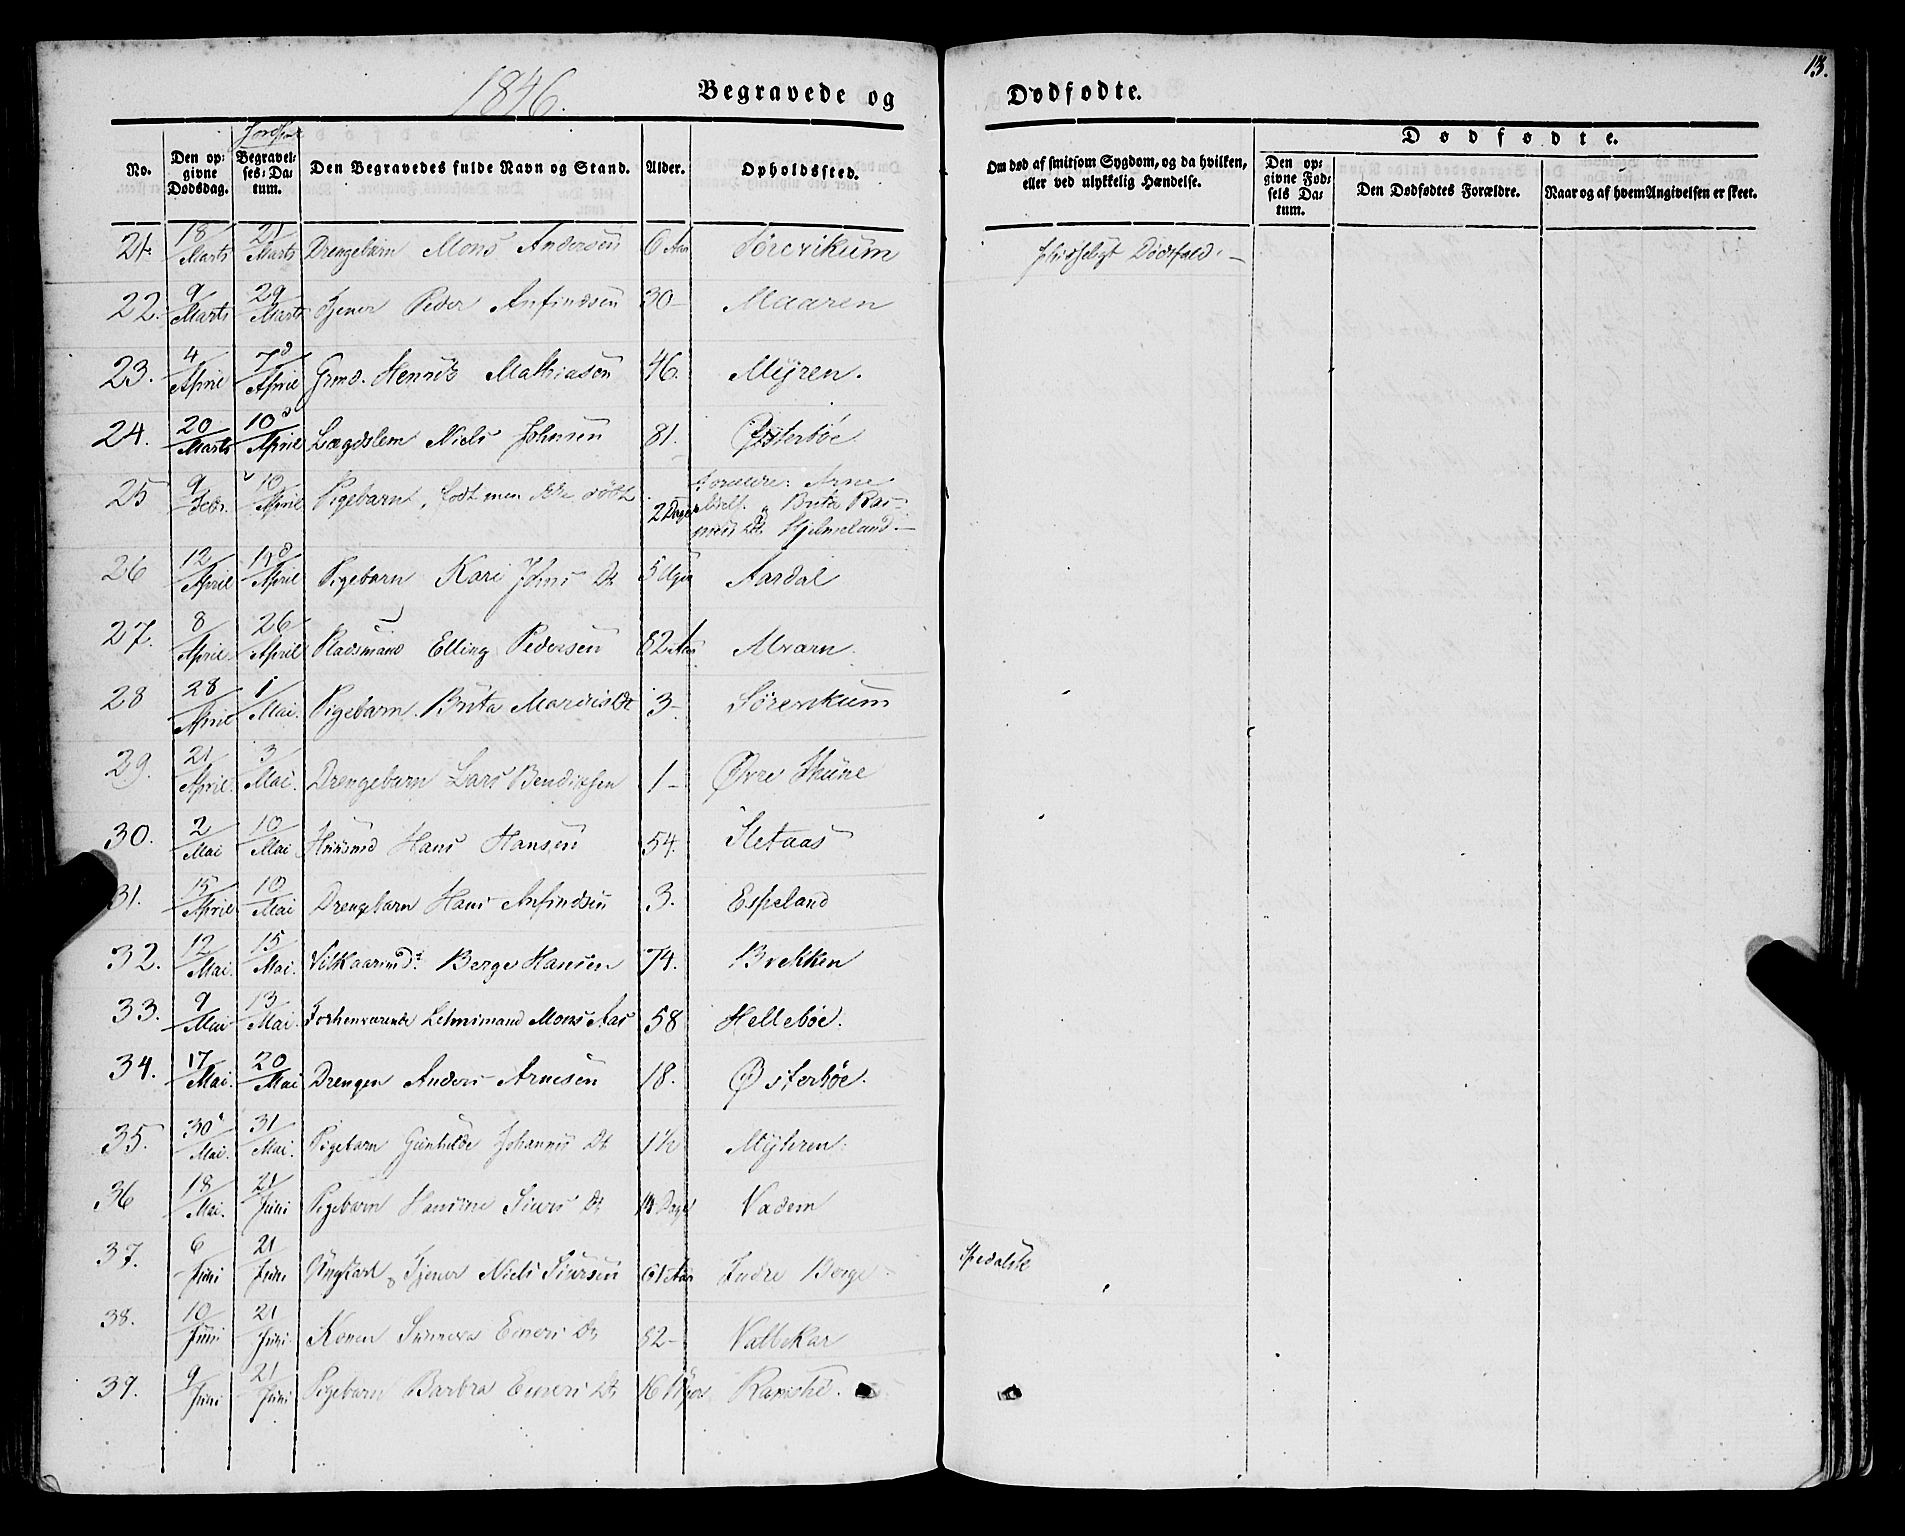 1846.
Begravede og Dødfødte.
13.
Jordfæst
No.
Den opgivne Dødsdag.
Begravelses-Datum.
Den Begravedes fulde Navn og Stand.
Alder.
Opholdssted.
Om død af smitsom Sygdom, og da hvilken, eller ved ulykkelig Hændelse.
Dødfødte.
Den opgivne Fødsels Datum.
Den Dødfødtes Forældre.
Naar og af hvem Angivelsen er skeet.
21. 18/Marts 21/Marts Drengebarn Mons Andersen 6 Aar Sørevikum Dødsfald. -
22. 9/Marts 29/Marts Tjener Peder Anfindsen 30- Maaren
23. 4/April 7d/April Grmd. Henrik Mathiasen 46. Myren.
24. 20/Marts 10d/April Lægdslem Niels Johnsen 81. Østerbøe
25 9/Febr. 10/April Pigebarn, født men ikke døbt 2 Dage Forældre: Arne
Brita Ras-
mus Dt. Hjelmeland.-
26 12/April 14d/April Pigebarn Kari Johns Dt 5 Uger Aardal
27. 8/April 26/April Pladsmand Elling Pedersen 82 Aar Alvarn.
28 28/April 1/Mai. Pigebarn. Brita Dt 3- Sørevikum
29. 21/April 3/Mai. Drengebarn Lars Bendiksen 1- Øvre
30. 2/Mai 10/Mai Huusmd Hans Hansen 54. Sletaas
31. 15/April 10/Mai Drengebarn Hans Anfindsen 3. Espeland
32. 12/Mai. 15/Mai. Vilkaarmd: Berge Hansen 74. Brekken
33. 9/Mai 13/Mai. Forhenværende Lehnsmand Mons Aas 58 Hellebøe.
34. 17/Mai. 20/Mai Drengen Anders Arnesen 18. Østerbøe.
35. 30/Mai. 31/Mai. Pigebarn Gunhilde Johannis Dt 1½ Myhren.
36 18/Mai. 21/Juni Pigebarn Hansine Siurs Dt 14 Dage Vadem
37. 6/Juni 21/Juni Ungkarl & Tjener Niels Siursen 61 Aar Indre Berge spedalsk
38. 10/Juni 21/Juni. Konen Sunneva Einers Dt 52- Vattekar
39. 9/Juni 21/Juni Pigebarn Barbra Einers Dt 16 Uger